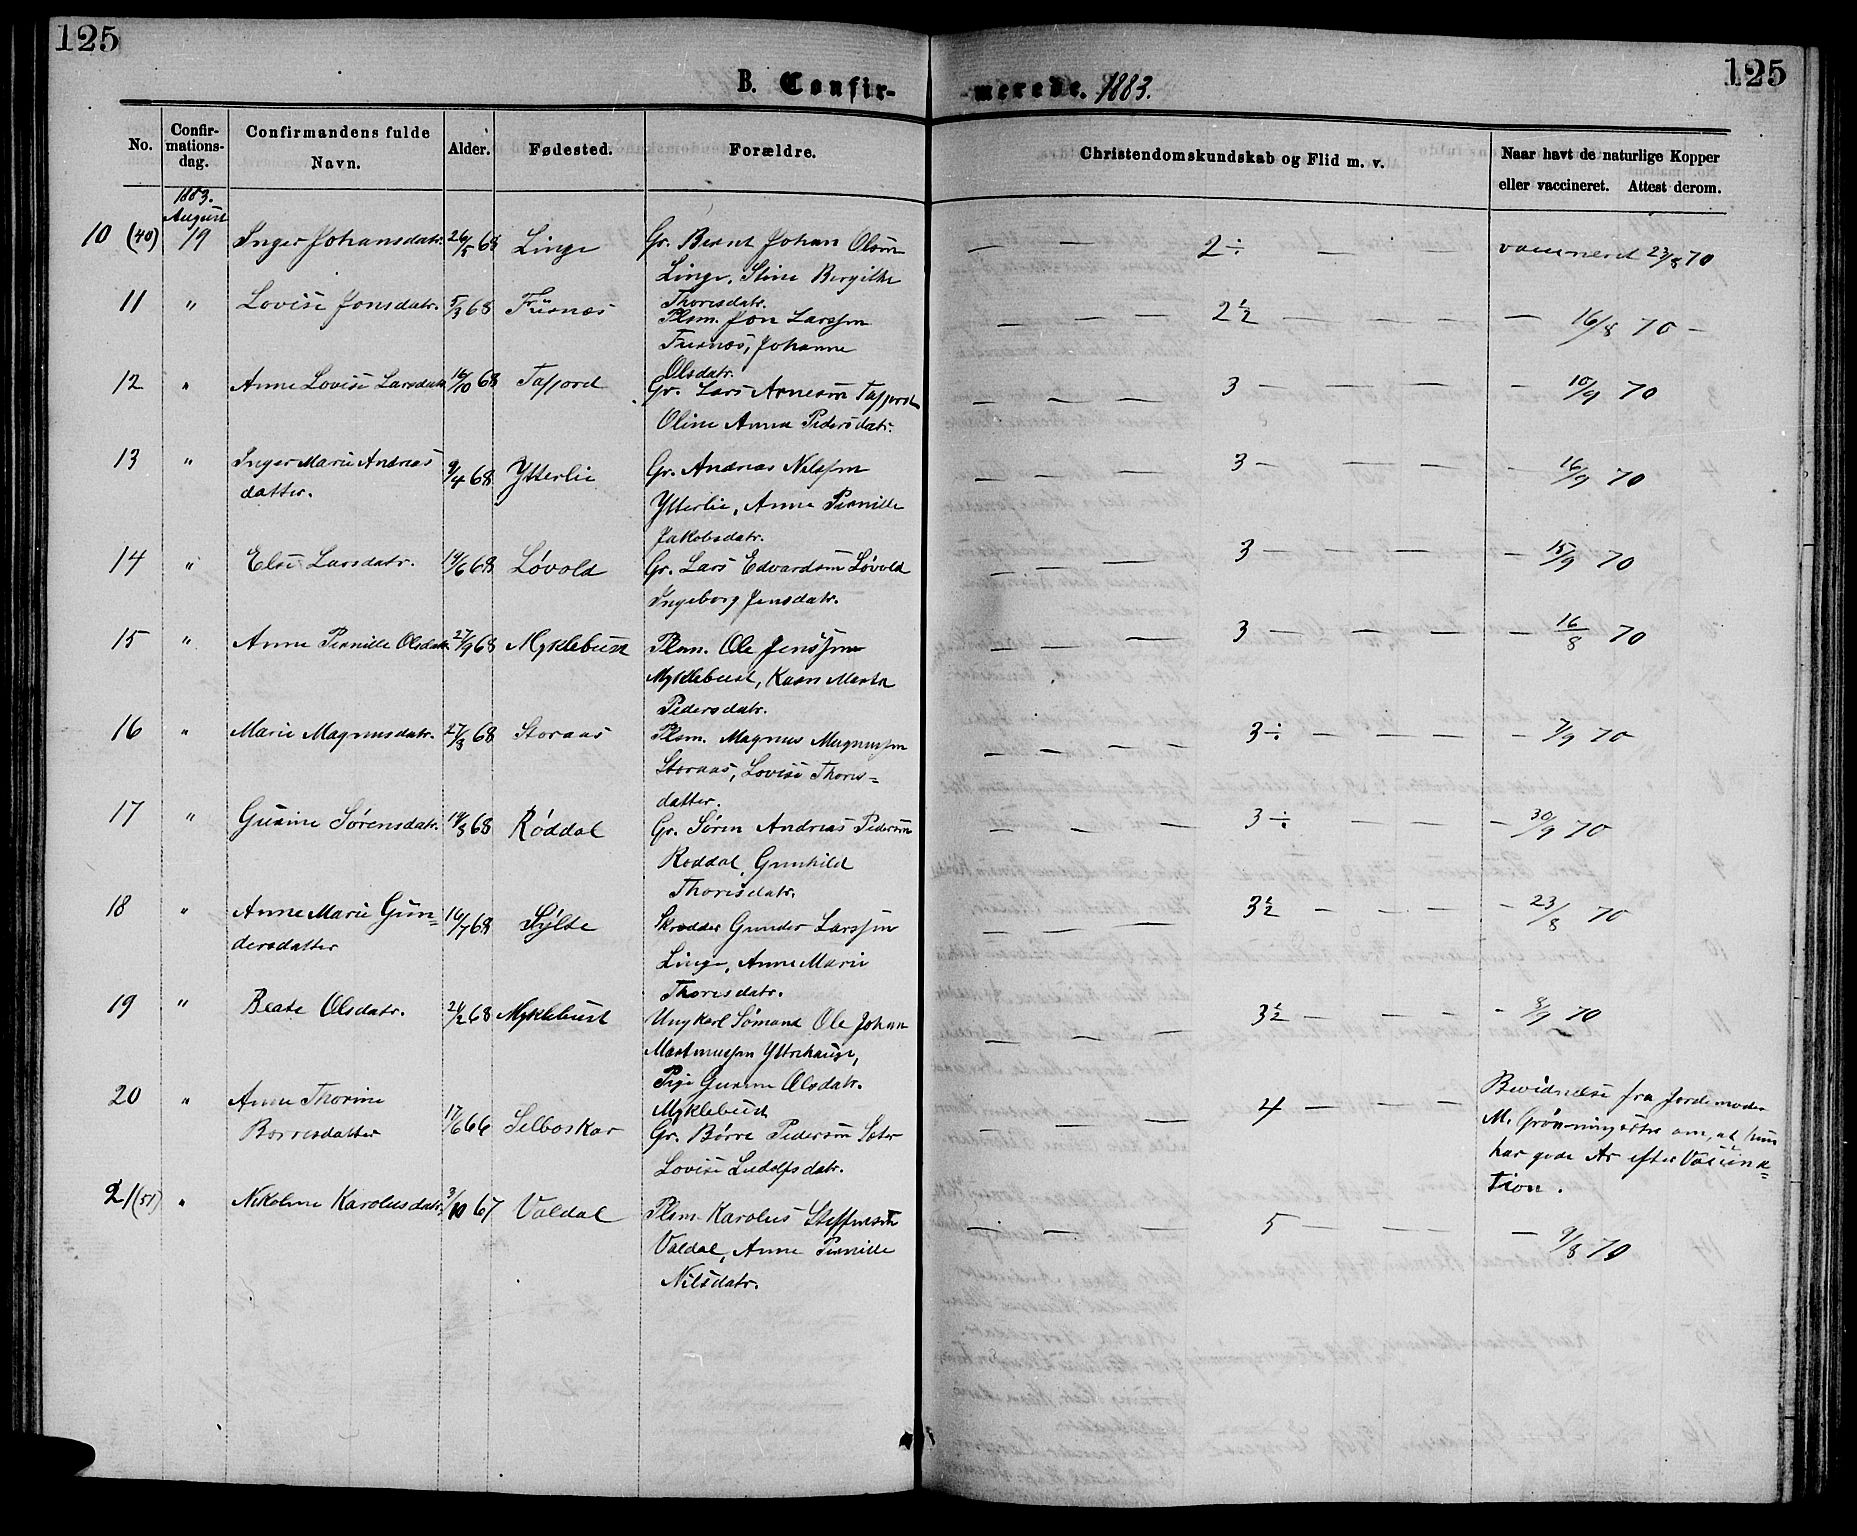 125
125
B. Confir-
-merede. 1883.
No. Confir-mations-dag. Confirmandens fulde Navn. Alder. Fødested. Forældre. Christendomskundskab og Flid m. v. Naar havt de naturlige Kopper eller vaccineret. Attest derom.
1883.
August
10 (40) 19 Inger Johansdatr. 26/5 68 Linge Gr. Bernt Johan Olsen — — 2÷ — — — vaccineret 23/8 70
Linge, Stine Bergithe
Thoresdatr.
11 " Lovise Jonsdatr. 5/3 68 Furnæs Plsm. Jon Larssøn — — — 2½ — — — — 16/8 70 —
Furnæs, Johanne
Olsdatr.
12 " Anne Lovise Larsdatr. 16/10 68 Tafjord Gr. Lars Arnesøn Tafjord — — — 3 — — — — 10/9 70
Oline Anna Pedersdatr.
13 " Inger Marie Andreas 9/4 68 Ytterlie Gr. Andreas Nilssøn — — — 3 — — — — 16/9 70
datter.
Ytterlie, Anne Pernille
Jakobsdatr.
14 " Else Larsdatr. 14/6 68 Løvold Gr. Lars Edvardsøn Løvold — — — 3 — — — — 15/9 70
Ingeborg Jensdatr.
15 " Anne Pernille Olsdatr. 27/9 68 Myklebust Plsm. Ole Jenssøn — — — 3 — — — — 16/8 70
Myklebust, Karn Marta
Pedersdatr.
16 " Marie Magnusdatr. 27/8 68 Storaas Plsm. Magnus Magnussøn — — — 3÷ — — — — 7/9 70
Storaas, Lovise Thores=
datter.
17 " Gurine Sørensdatr. 14/3 68 Røddal Gr. Søren Andreas Pedersøn — — — 3÷ — — — — 30/9 70
Røddal, Gunhild
Thoresdatr.
18 " Anne Marie Gun= 16/7 68 Sylte Skrædder Gunder Larssøn — — — 3½ — — — — 23/8 70
dersdatter
Linge, Anne Marie
Thoresdatr.
19 " Beate Olsdatr. 24/2 68 Myklebust Ungkarl Sømand Ole Johan — — — 3½ — — — - 8/9 70
Martinussøn Yttrehauge,
Pige Gurine Olsdatr.
Myklebust
20 " Anne Thorine 17/6 66 Selboskar Gr. Børre Pedersøn — — — 4 — — — Bevidnelse fra Jordemoder
Børresdatter
Lovise Ludolfsdatr.
M. om, at hun
har gode Ar efter Vaccina=
tion.
21 (51) " Nikoline Karolusdatr. 3/10 67 Valdal Plsm. Karolus Steffensøn — — — 5 — — — 9/8 70
Valdal, Anne Pernille
Nilsdatr.